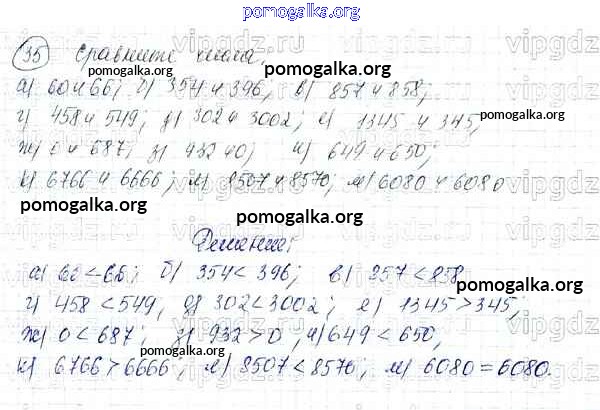 pomogalka.org
35 Сравните числа:
а) 60 и 66; б) 354 и 396; в) 857 и 858;
г) 458 и 549; д) 302 и 3002; е) 1345 и 345;
ж) 0 и 687; з) 932 и 0; и) 649 и 650;
к) 6766 и 6666; л) 8507 и 8570; м) 6080 и 6080
pomogalka.org
Решение:
а) 60 < 66; б) 354 < 396; в) 857 < 858
г) 458 < 549, д) 302 < 3002; е) 1345 > 345;
ж) 0 < 687; з) 932 > 0, и) 649 < 650,
к) 6766 > 6666, л) 8507 < 8570; м) 6080 = 6080.